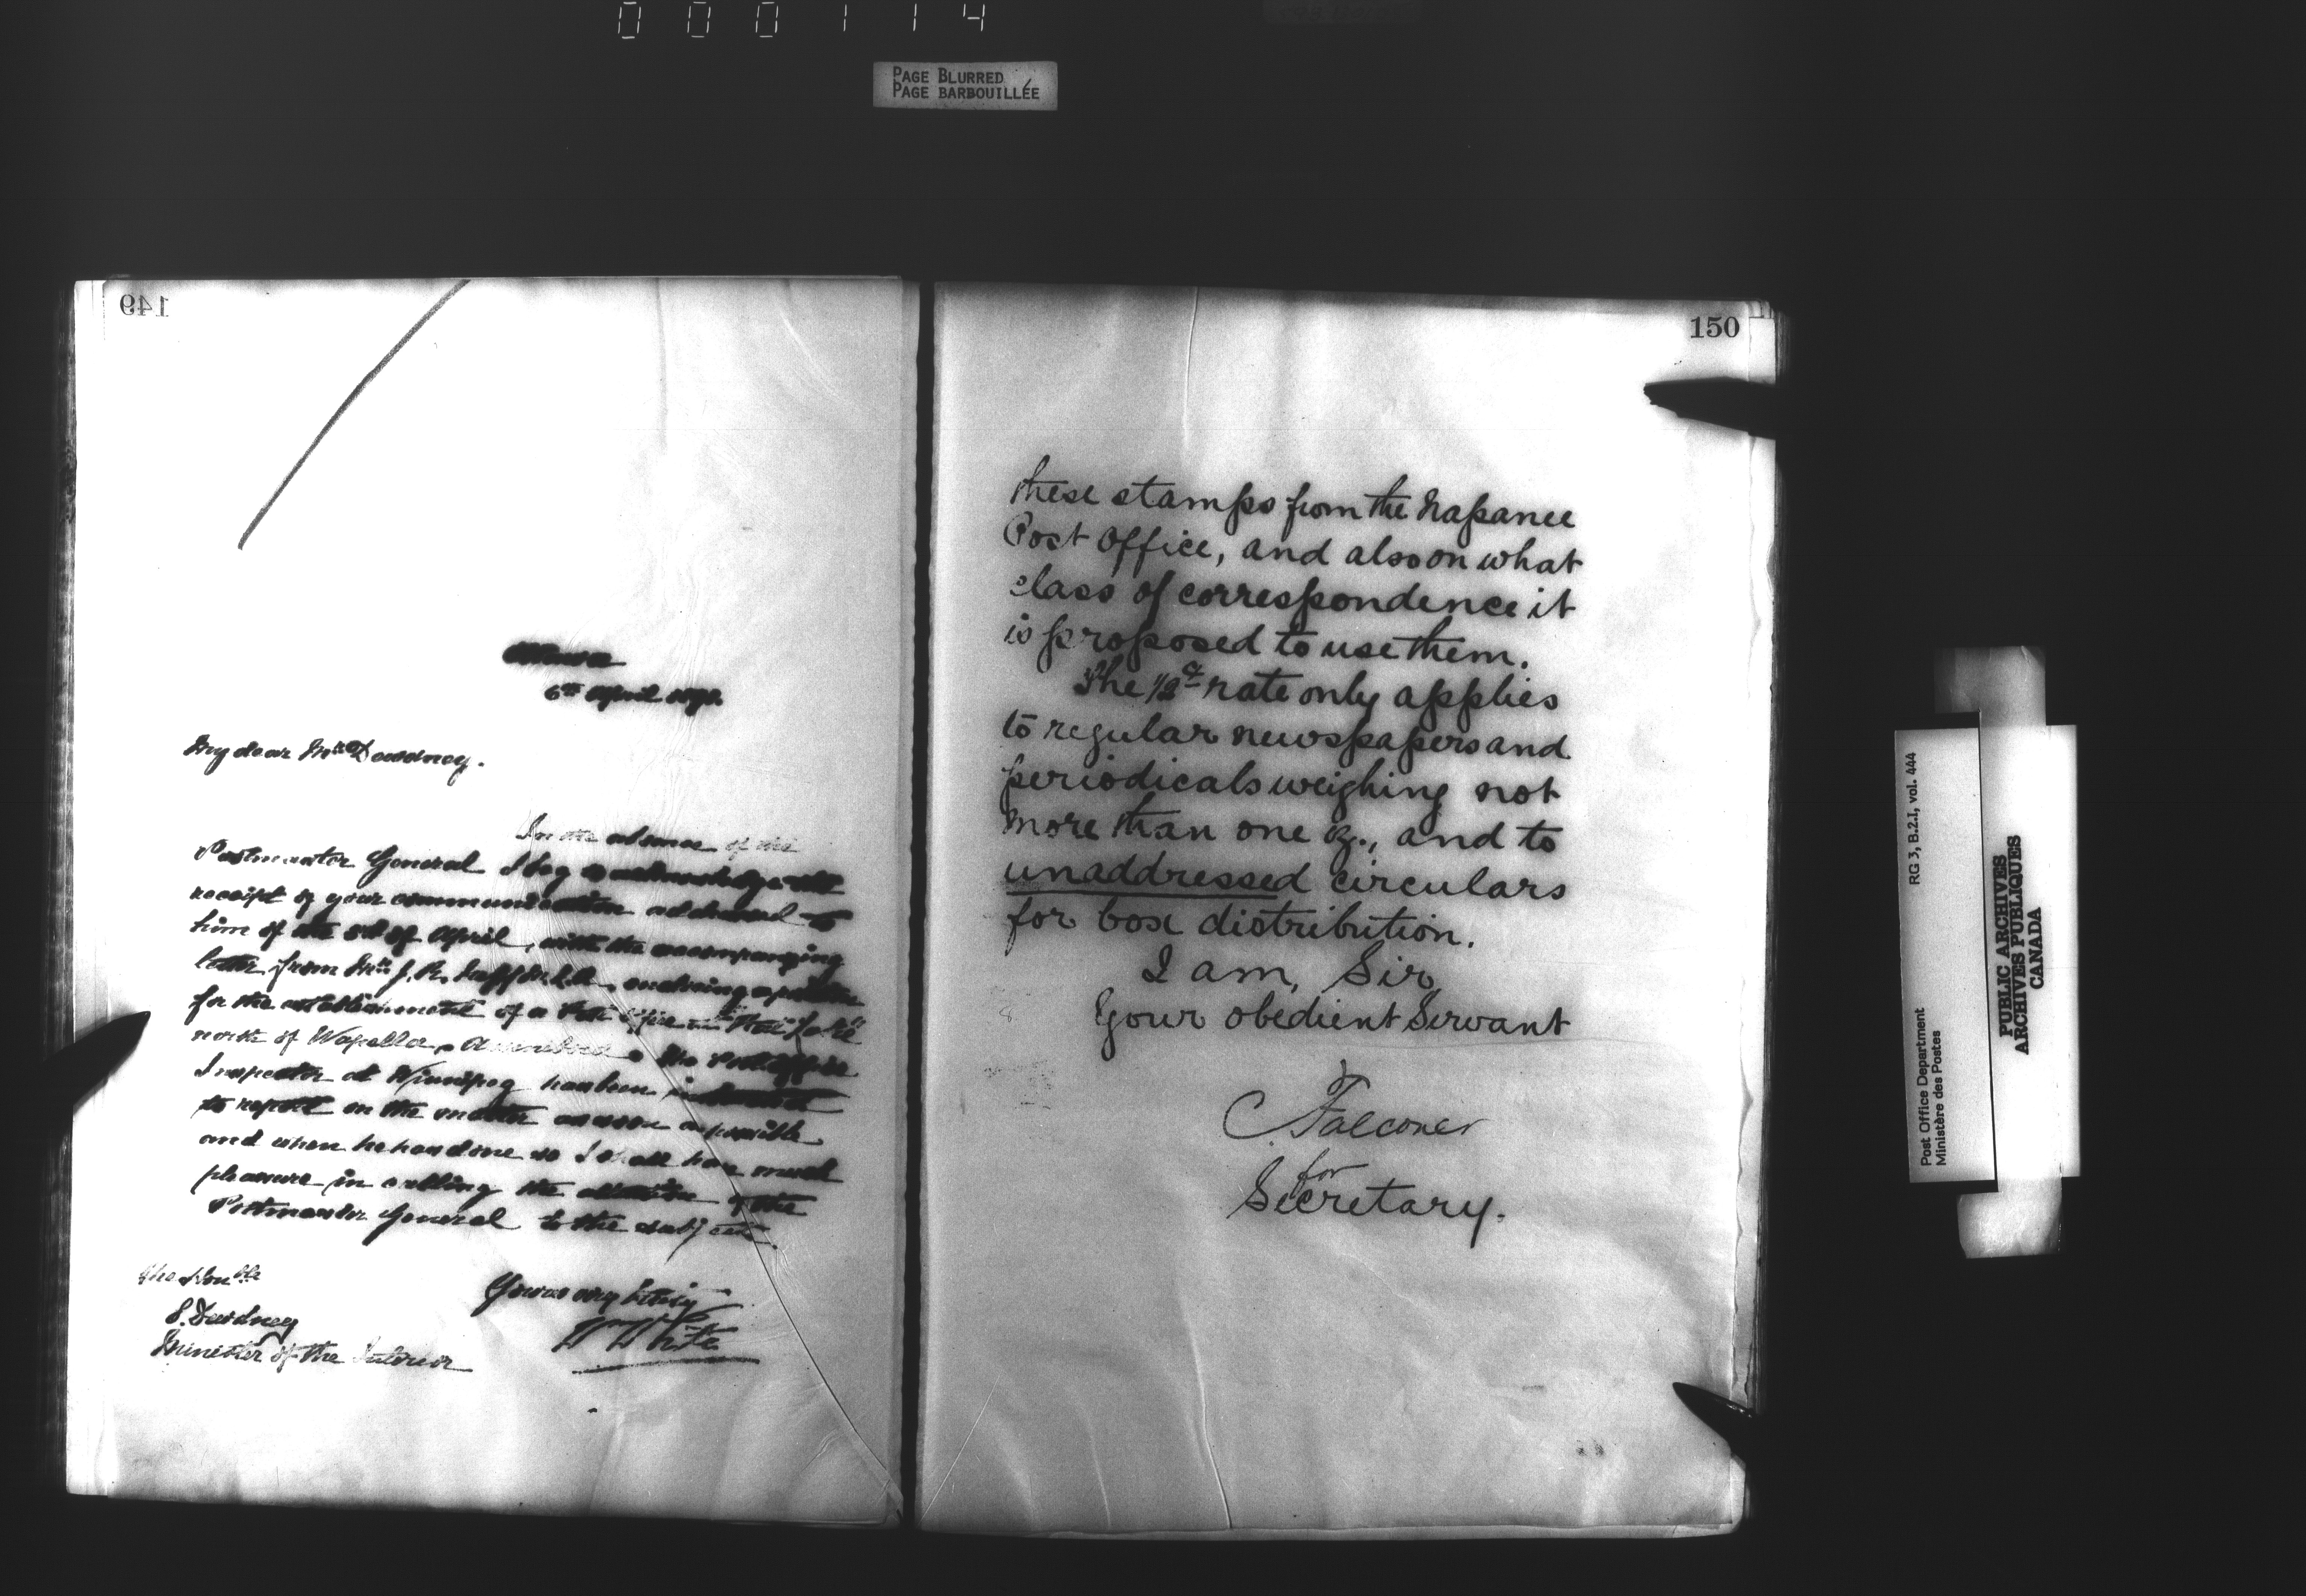 000114
PAGE BLURRED
PAGE BARBOUILLÉE
149
Ottawa
6th April
My dear Mr. Dewdney.
In the absence of the
Postmaster General I beg to acknowledge the
receipt of your communication addressed to
him of the 3rd of April, with the accompanying
letter from Mr. J. R. M.L.A., enclosing a petition
for the establishment of a Post Office
north of Wapella, Assiniboia. The Post Office
Inspector at Winnipeg has been instructed
to report on the matter as soon as possible
and when he has done so I shall have much
pleasure in calling the attention of the
Postmaster General to the subject.
Yours very truly
W White
The Honble
E. Dewdney
Minister of the Interior
150
these stamps from the Napanee
Post Office, and also on what
class of correspondence it
is proposed to use them.
The 1/2ct rate only applies
to regular newspapers and
periodicals weighing not
more than one oz., and to
unaddressed circulars
for box distribution.
I am, Sir,
Your obedient Servant
C. Falconer
for
Secretary.
RG 3, B.2.I, vol. 444
Post Office Department
Ministère des Postes
PUBLIC ARCHIVES
ARCHIVES PUBLIQUES
CANADA